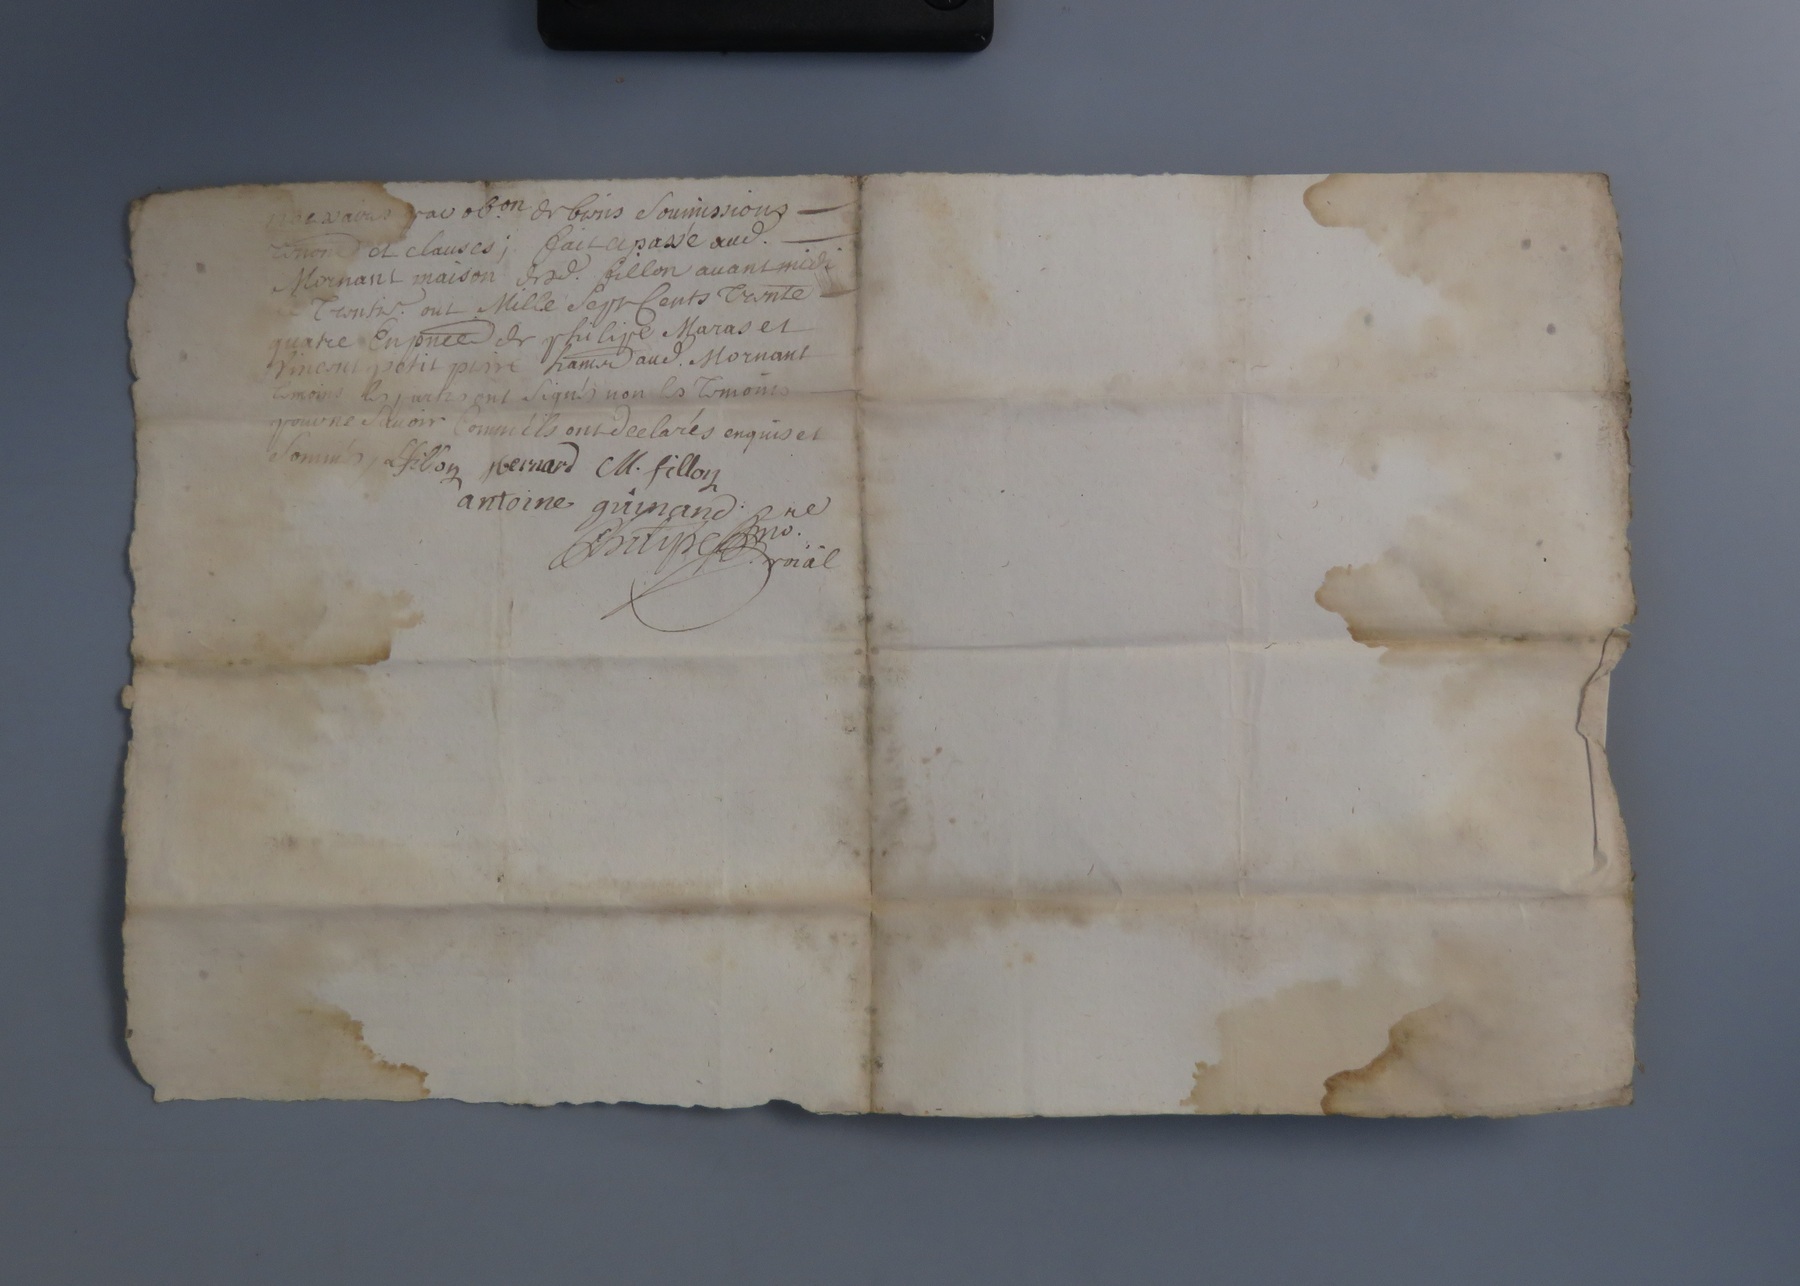 par ob.on de biens Soumissions
renon.on et clauses; fait et passé aud.
Mornant maison dud. fillon avant midi
le Trentie. out Mille Sept Cents Trente
quatre En pnce de philipe Maras et
Vincent petit pierre aud. Mornant
Temoins les parties ont Signés non les Temoins
pour ne Savoir Comm'ils ont declarés enquis et
Sommés fillon bernard M. fillon
antoine guinand.
no. re
roiäl